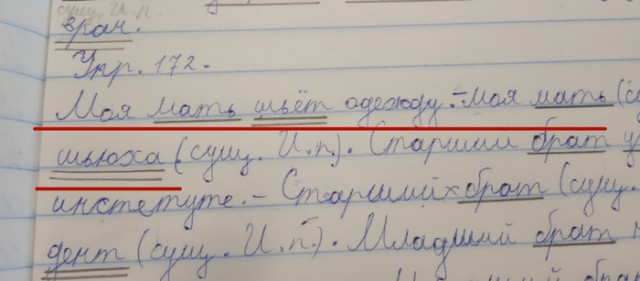 сущ. И.п.
врач.
Упр. 172.
Моя мать шьёт одежду. – Моя мать (
шьюха (сущ. И.п.). Старший брат у
инстетуте. – Старший брат (сущ.
дент (сущ. И.п.). Младший брат